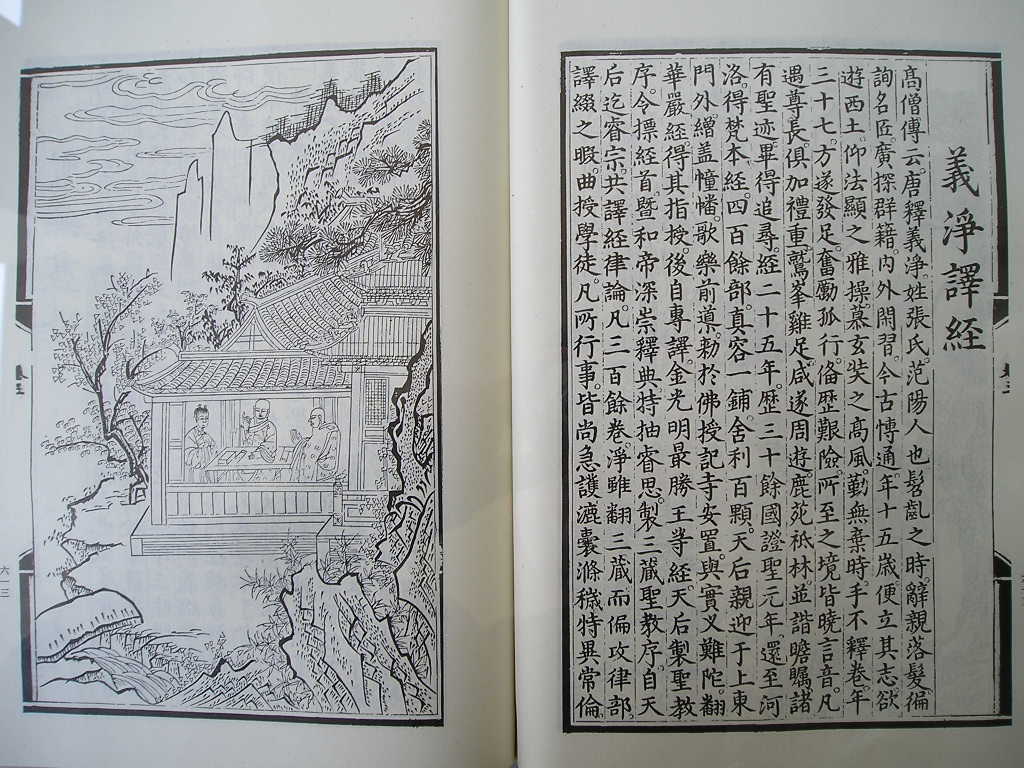 義淨譯經
高僧傳云。唐釋義淨。姓張氏。范陽人也。髫齔之時。辭親落髮。徧
詢名匠。廣探群籍。內外閑習。今古博通。年十五歲。便立其志。欲
遊西土。仰法顯之雅操。慕玄奘之高風。勤無棄時。手不釋卷。年
三十七。方遂發足。奮勵孤行。俻歷艱險。所至之境。皆曉言音。凡
遇尊長。俱加禮重。鷲峯雞足。咸遂周遊。鹿苑祇林。並諧瞻矚。諸
有聖迹。畢得追尋。經二十五年。歷三十餘國。證聖元年。還至河
洛。得梵本經。四百餘部。真容一鋪。舍利百顆。天后親迎于上東
門外。繒盖幢幡。歌樂前導。勑於佛授記寺安置。與實叉難陀翻
華嚴經。得其指授。後自專譯。金光明最勝王等經。天后製聖教
序。令摽經首。暨和帝深崇釋典。特抽睿思。製三藏聖教序。自天
后迄睿宗。共譯經律論。凡三百餘卷。淨雖翻三藏。而偏攻律部。
譯綴之暇。曲授學徒。凡所行事。皆尚急護。漉囊滌穢。特異常倫。
六一三